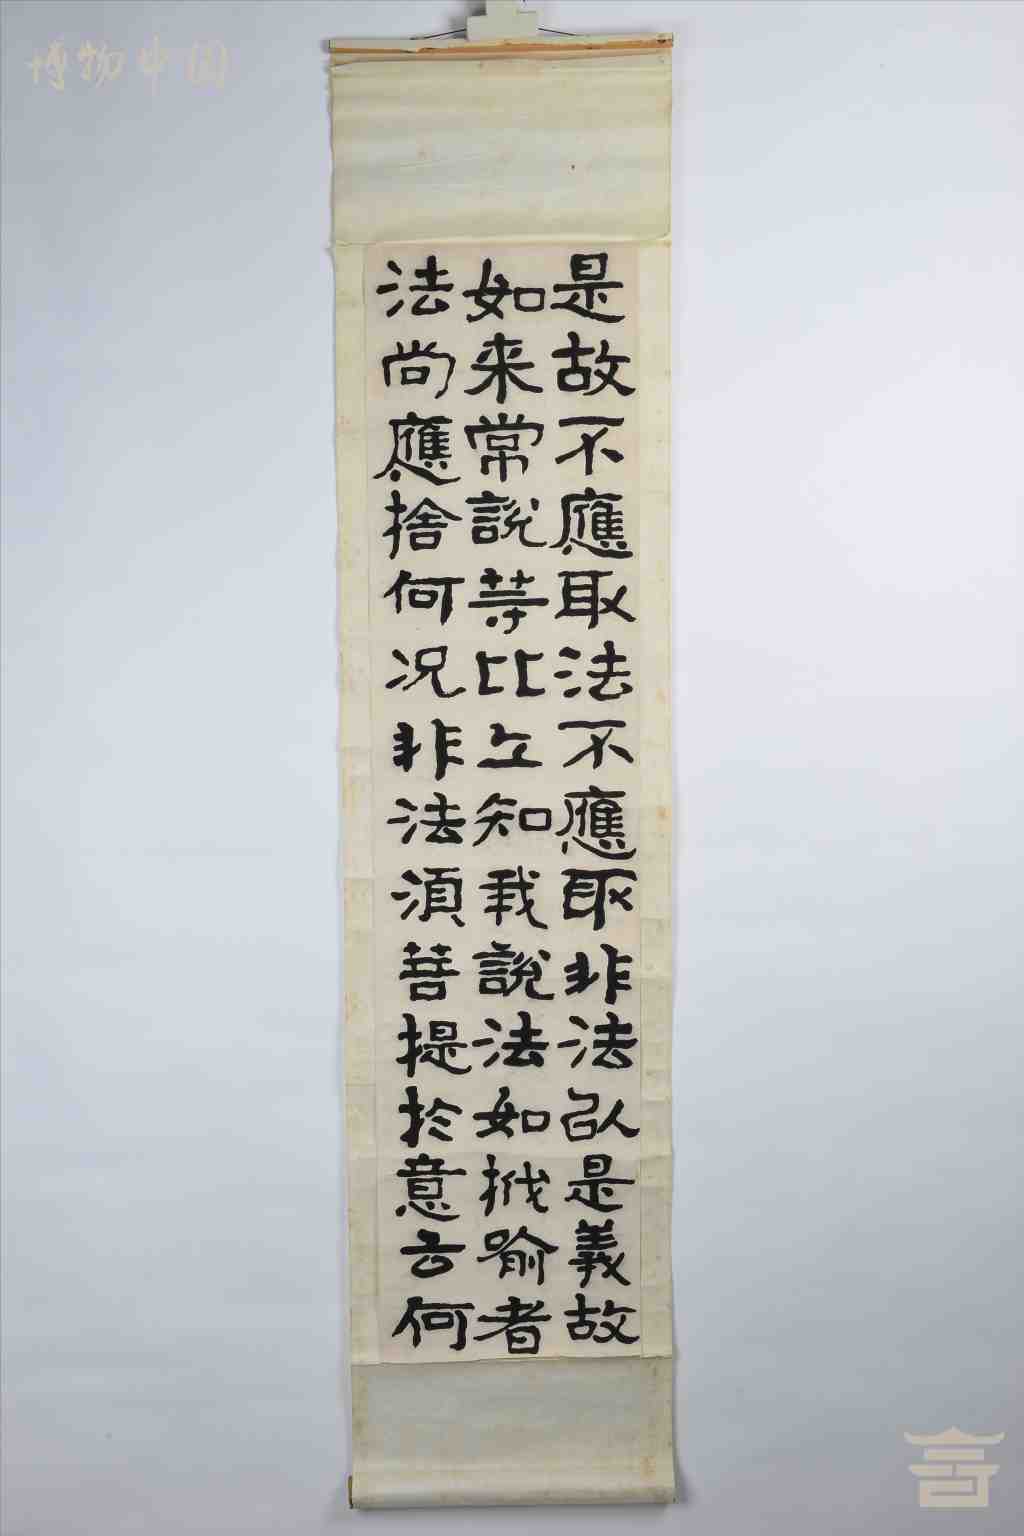 是故不應取法不應取非法以是義故
如来常說等比丘知我說法如栰喻者
法尚應捨何况非法須菩提於意云何
博物中国